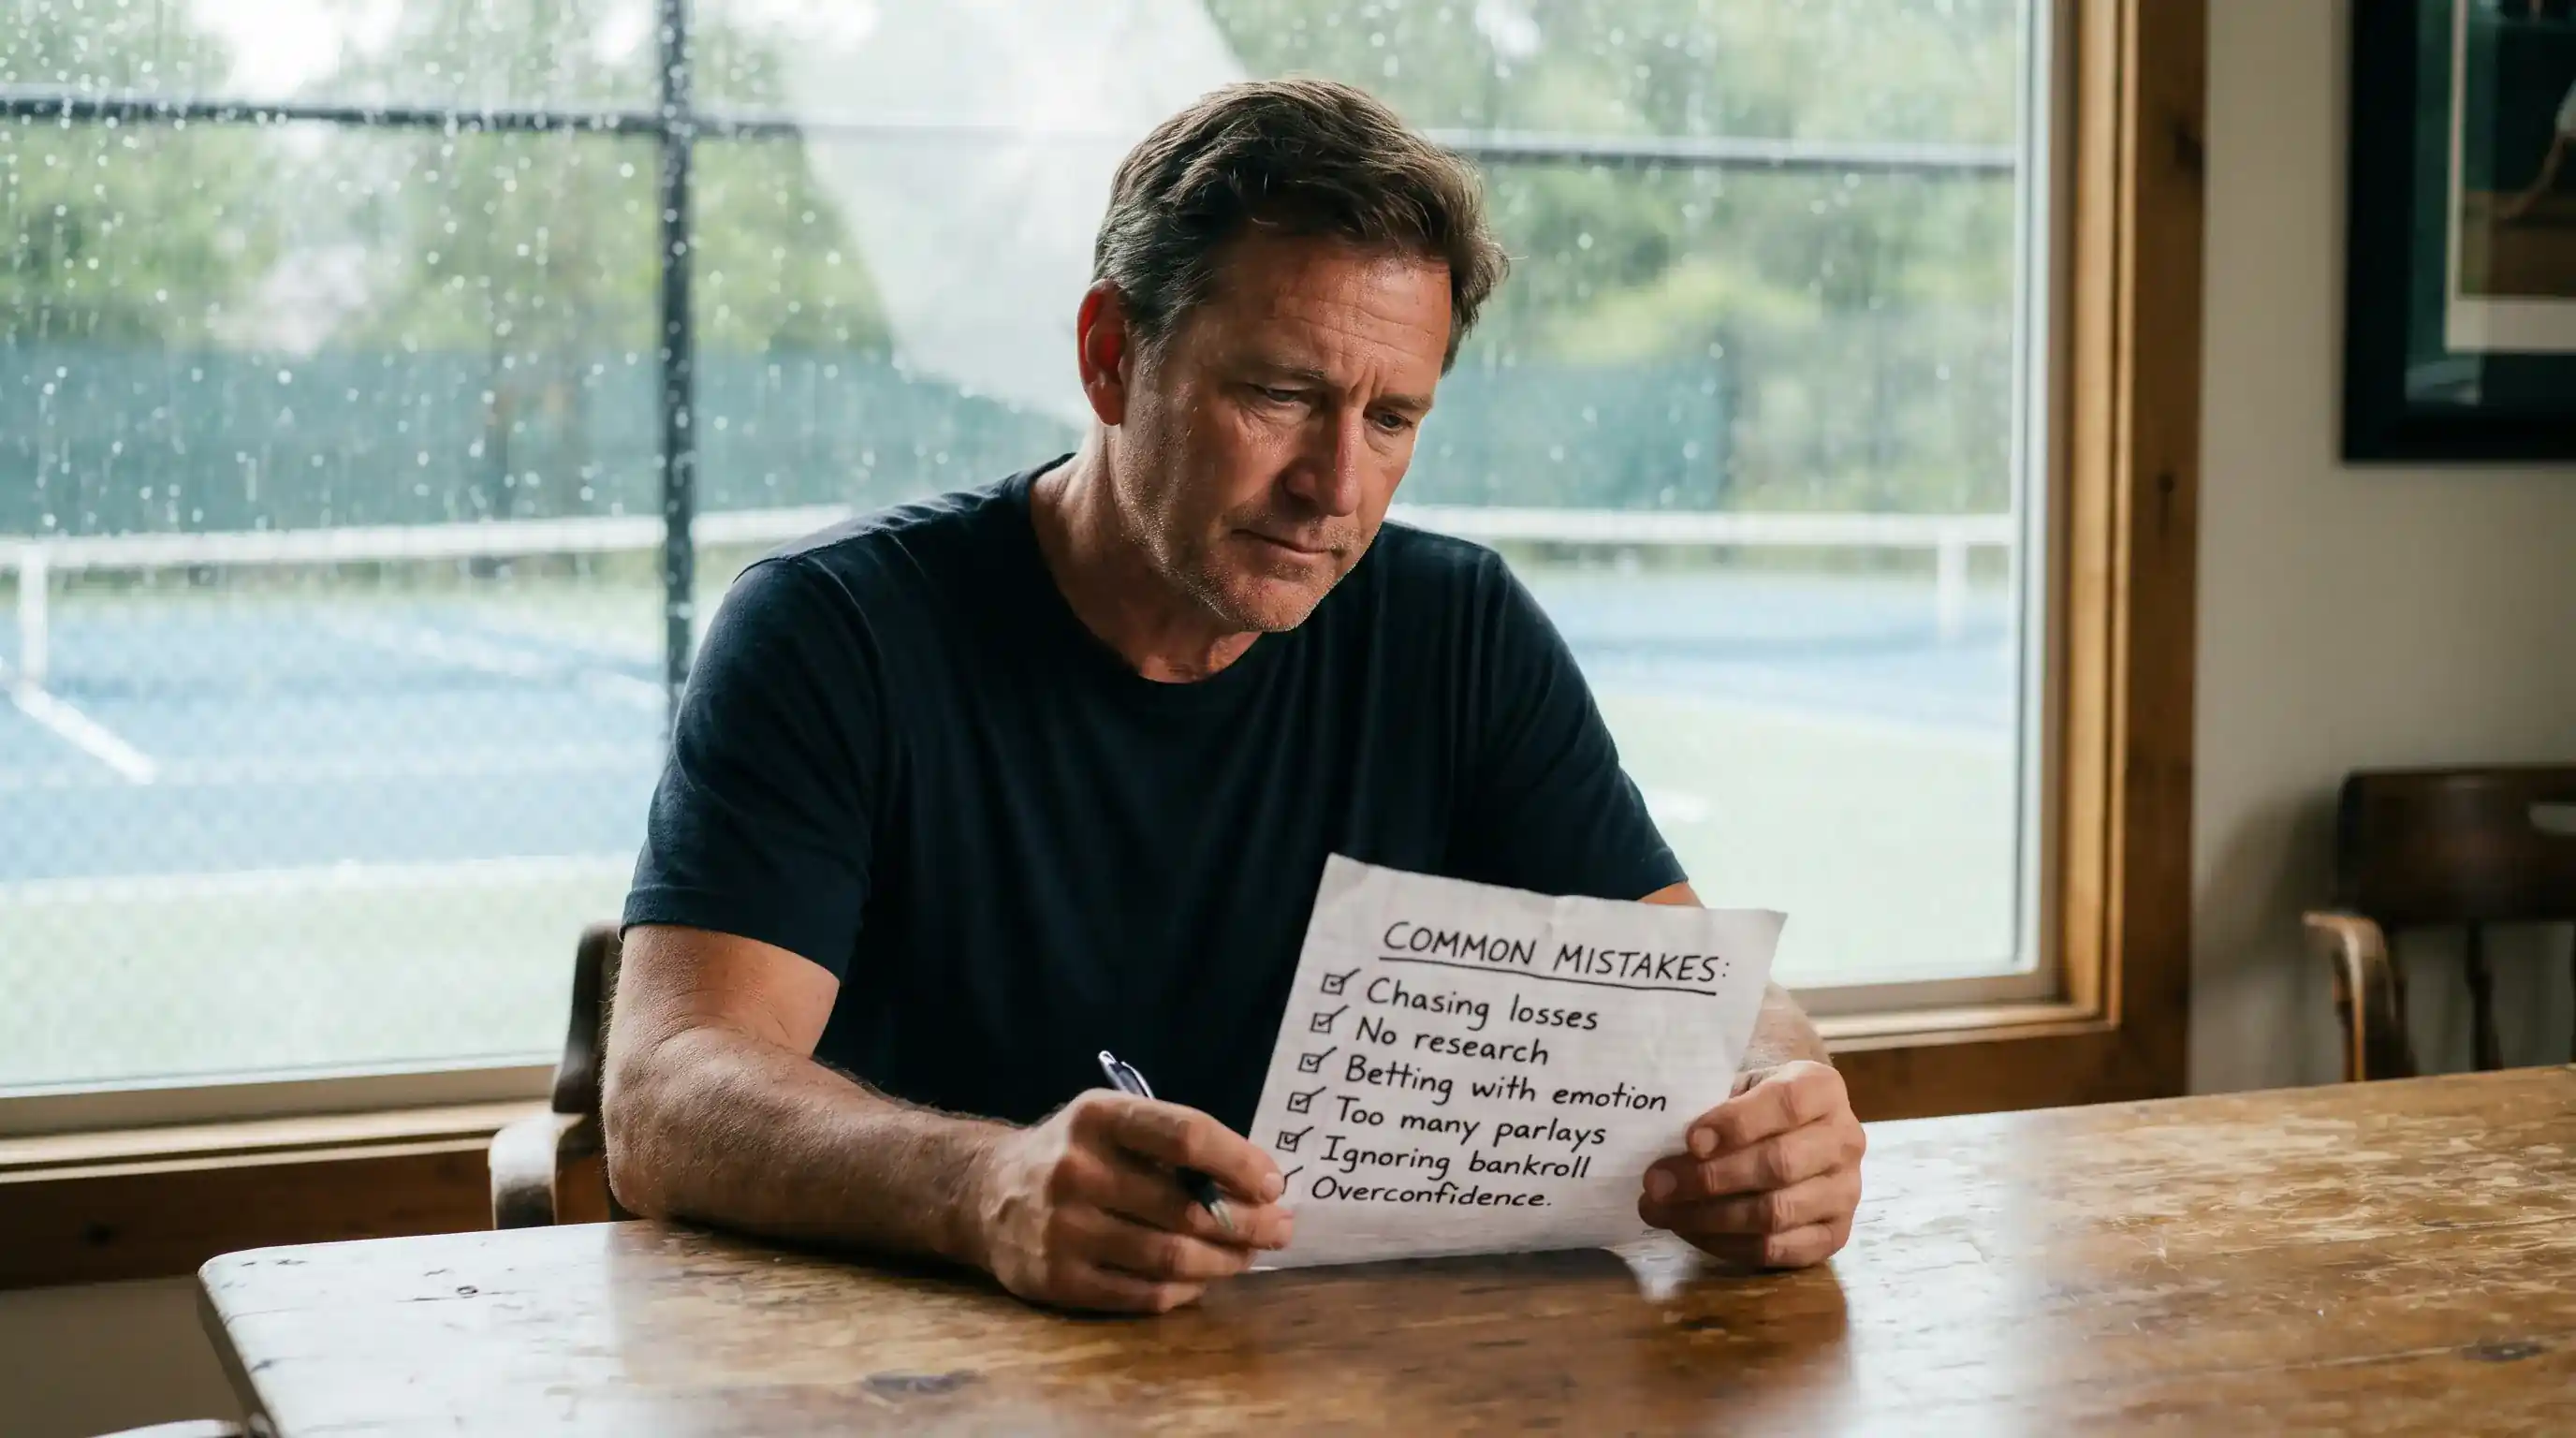 COMMON MISTAKES:
Chasing losses
No research
Betting with emotion
Too many parlays
Ignoring bankroll
Overconfidence.